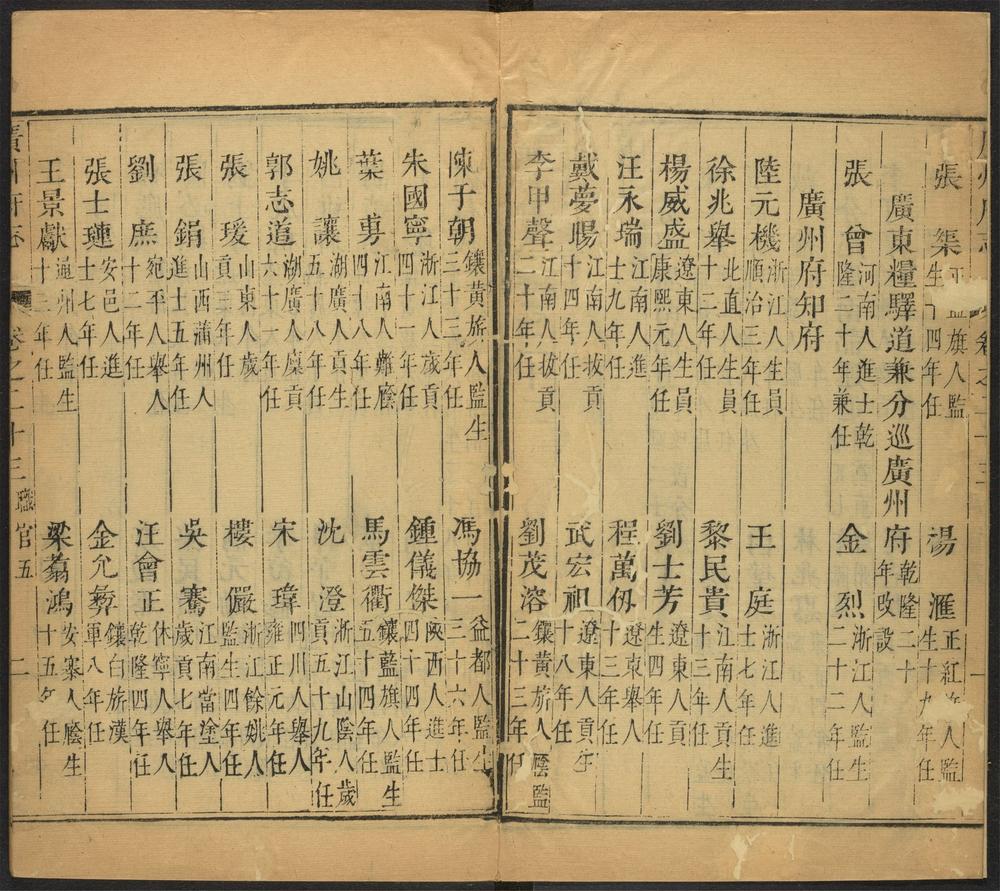 張渠 正藍旗人監生十四年任 湯滙 正紅旗人監生十九年任
廣東糧驛道兼分巡廣州府 乾隆二十年改設
張曾 河南人進士乾隆二十年兼任 金烈 浙江人監生二十二年任
廣州府知府
陸元機 浙江人生員順治三年任 王庭 浙江人進士七年任
徐兆舉 北直人生員十二年任 黎民貴 江南人貢生十三年任
楊威盛 遼東人生員康熙元年任 劉士芳 遼東人貢生四年任
汪永瑞 江南人進士九年任 程萬仭 遼東舉人十三年任
戴夢暘 江南人拔貢十四年任 武宏祖 遼東人貢生十八年任
李甲聲 江南人拔貢二十年任 劉茂溶 鑲黃旂人廕監二十三年任
陳子朝 鑲黃旂人監生三十三年任 馮協一 益都人監生三十六年任
朱國寧 浙江人歲貢四十一年任 鍾儀傑 陝西人進士四十四年任
葉旉 江南人難廕四十八年任 馬雲衢 鑲藍旗人監生五十四年任
姚讓 湖廣人貢生五十八年任 沈澄 浙江山陰人歲貢五十九年任
郭志道 湖廣人廩貢六十一年任 宋瑋 四川人舉人雍正元年任
張瑗 山東人歲貢三年任 樓儼 浙江餘姚人監生四年任
張鋗 山西蒲州人進士五年任 吳騫 江南當塗人歲貢七年任
劉庶 宛平人舉人十二年任 汪會正 休寧人舉人乾隆四年任
張士璉 安邑人進士七年任 金允彝 鑲白旂漢軍八年任
王景獻 通州人監生十三年任 梁翥鴻 安寨人廕生十五年任
廣州府志 卷之二十三 職官五 二